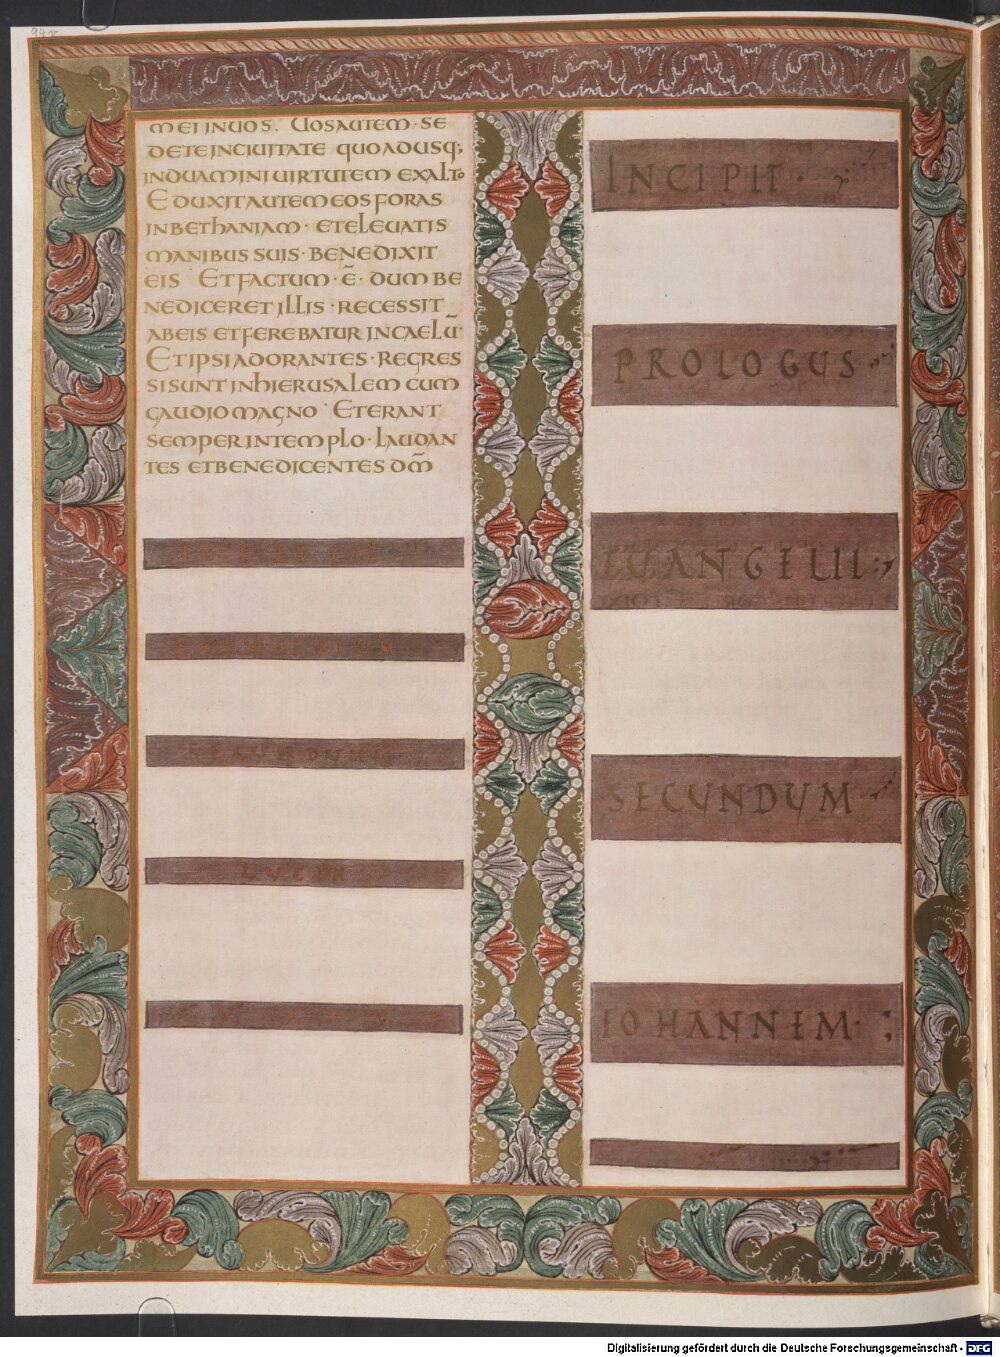 94v
MEI INUOS. UOSAUTEM · SE
DETE INCIUITATE QUOADUSQ;
INDUAMINI UIRTUTEM EXALTO
EDUXITAUTEM EOS FORAS
INBETHANIAM · ETELEUATIS
MANIBUS SUIS · BENEDIXIT
EIS ETFACTUM · Ē · DUM BE
NEDICERET ILLIS · RECESSIT
ABEIS ETFEREBATUR INCAELŪ ·
ETIPSIADORANTES · REGRES
SISUNT INHIERUSALEM CUM
GAUDIO MAGNO · ETERANT
SEMPER INTEMPLO · LAUDAN
TES ETBENEDICENTES DM̄
SECUNDUM
INCIPIT ·
PROLOGUS ·
EUANGELII :
SECUNDUM ·
IOHANNEM · ;
Digitalisierung gefördert durch die Deutsche Forschungsgemeinschaft - DFG